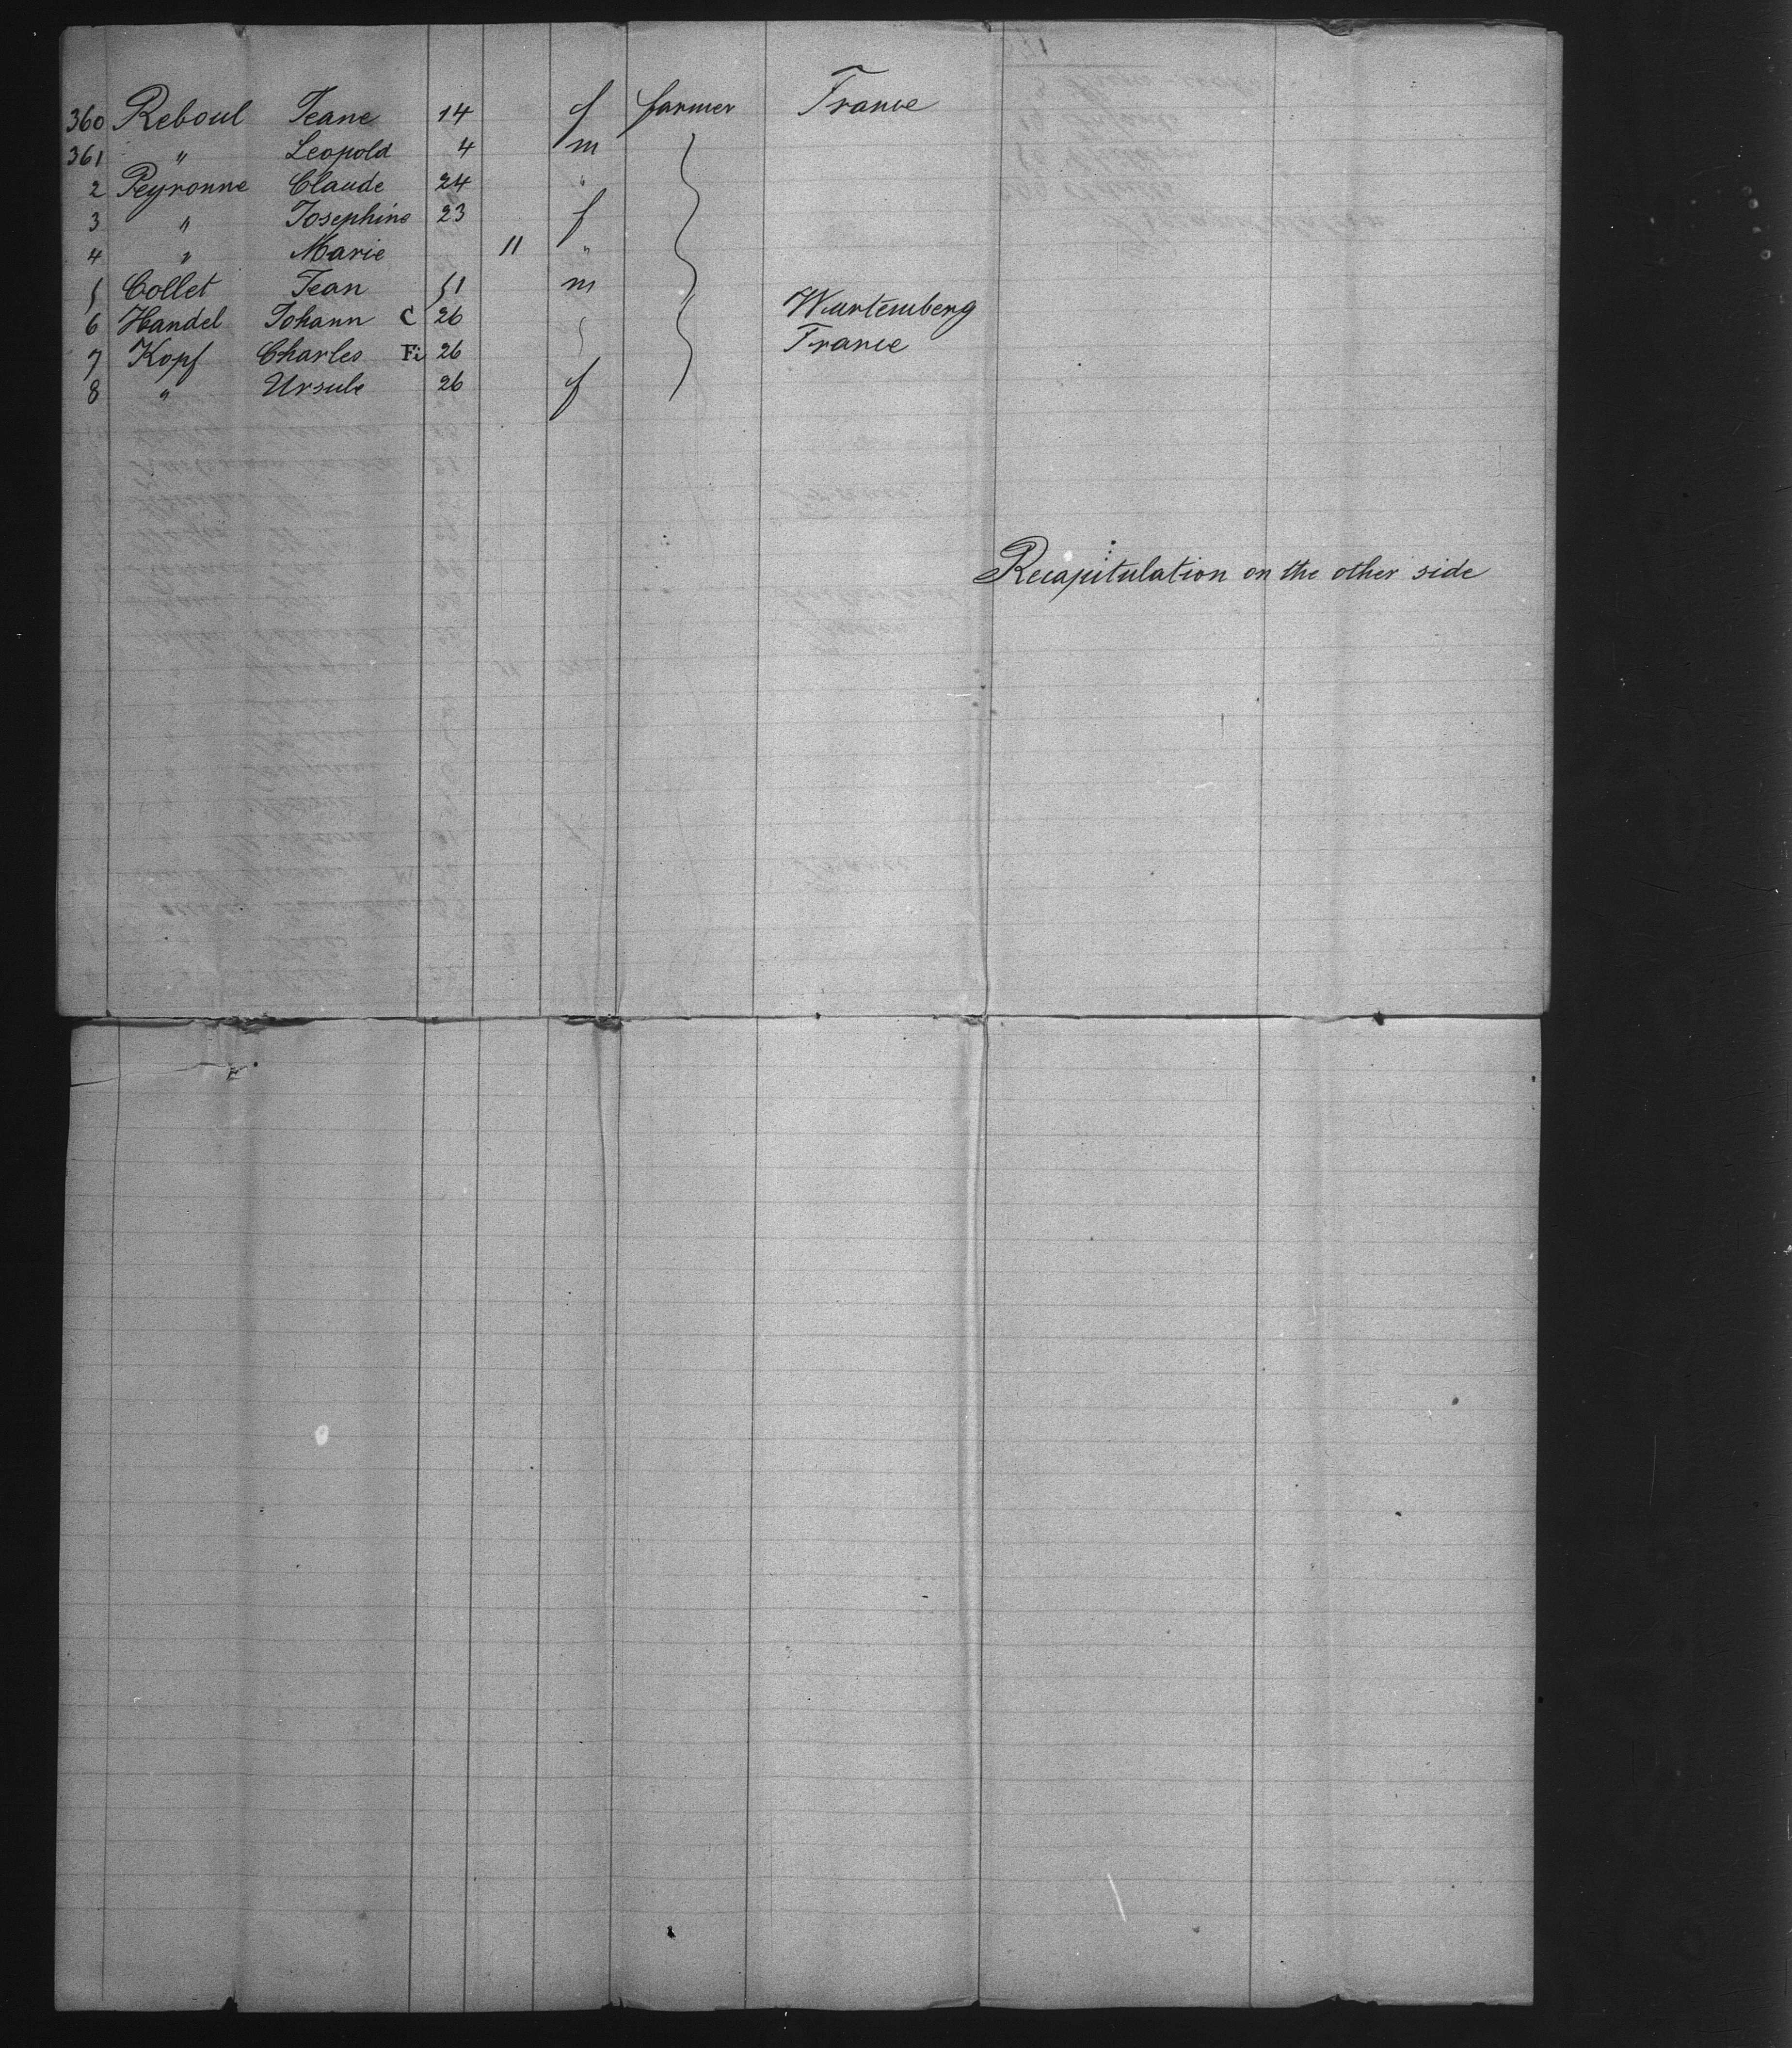 360 Reboul Jeane 14 f farmer France
361 " Leopold 4 m
2 Peyronne Claude 24 "
3 " Josephine 23 f
4 " Marie 11 "
5 Collet Jean 51 m
6 Handel Johann C 26 Wurtemberg
7 Kopf Charles Fi 26 France
8 " Ursule 26 f
Recapitulation on the other side